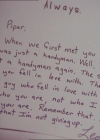 Always.
Piper,
When we first met you
was just a handyman. Well,
a handyman again. The
you fell in love with. The
guy who fell in love with
who you are, not who I
you are. Remember that,
that I'm not giving up.
Leo